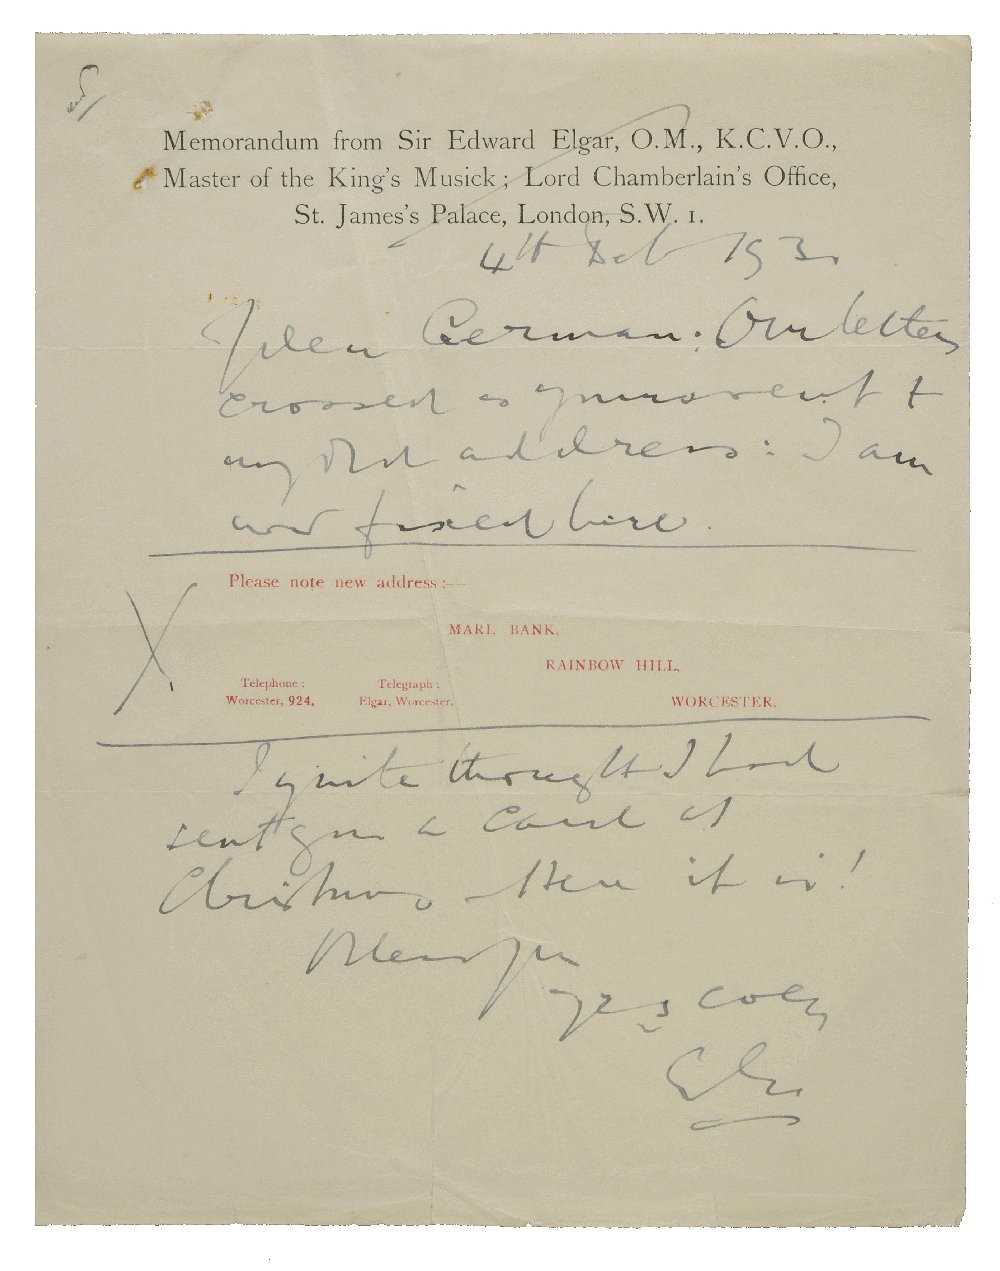 Memorandum from Sir Edward Elgar, O.M., K.C.V.O.,
Master of the King's Musick; Lord Chamberlain's Office,
St. James's Palace, London, S.W. 1.
4th Feb 193
My dear German: Our letters
crossed as yours went to
my old address: I am
now fixed here.
Please note new address:—
MARL BANK,
RAINBOW HILL,
Telephone: Telegraph:
Worcester, 924. Elgar, Worcester. WORCESTER.
I quite thought I had
sent you a card at
Christmas – Here it is!
Bless you
yrs